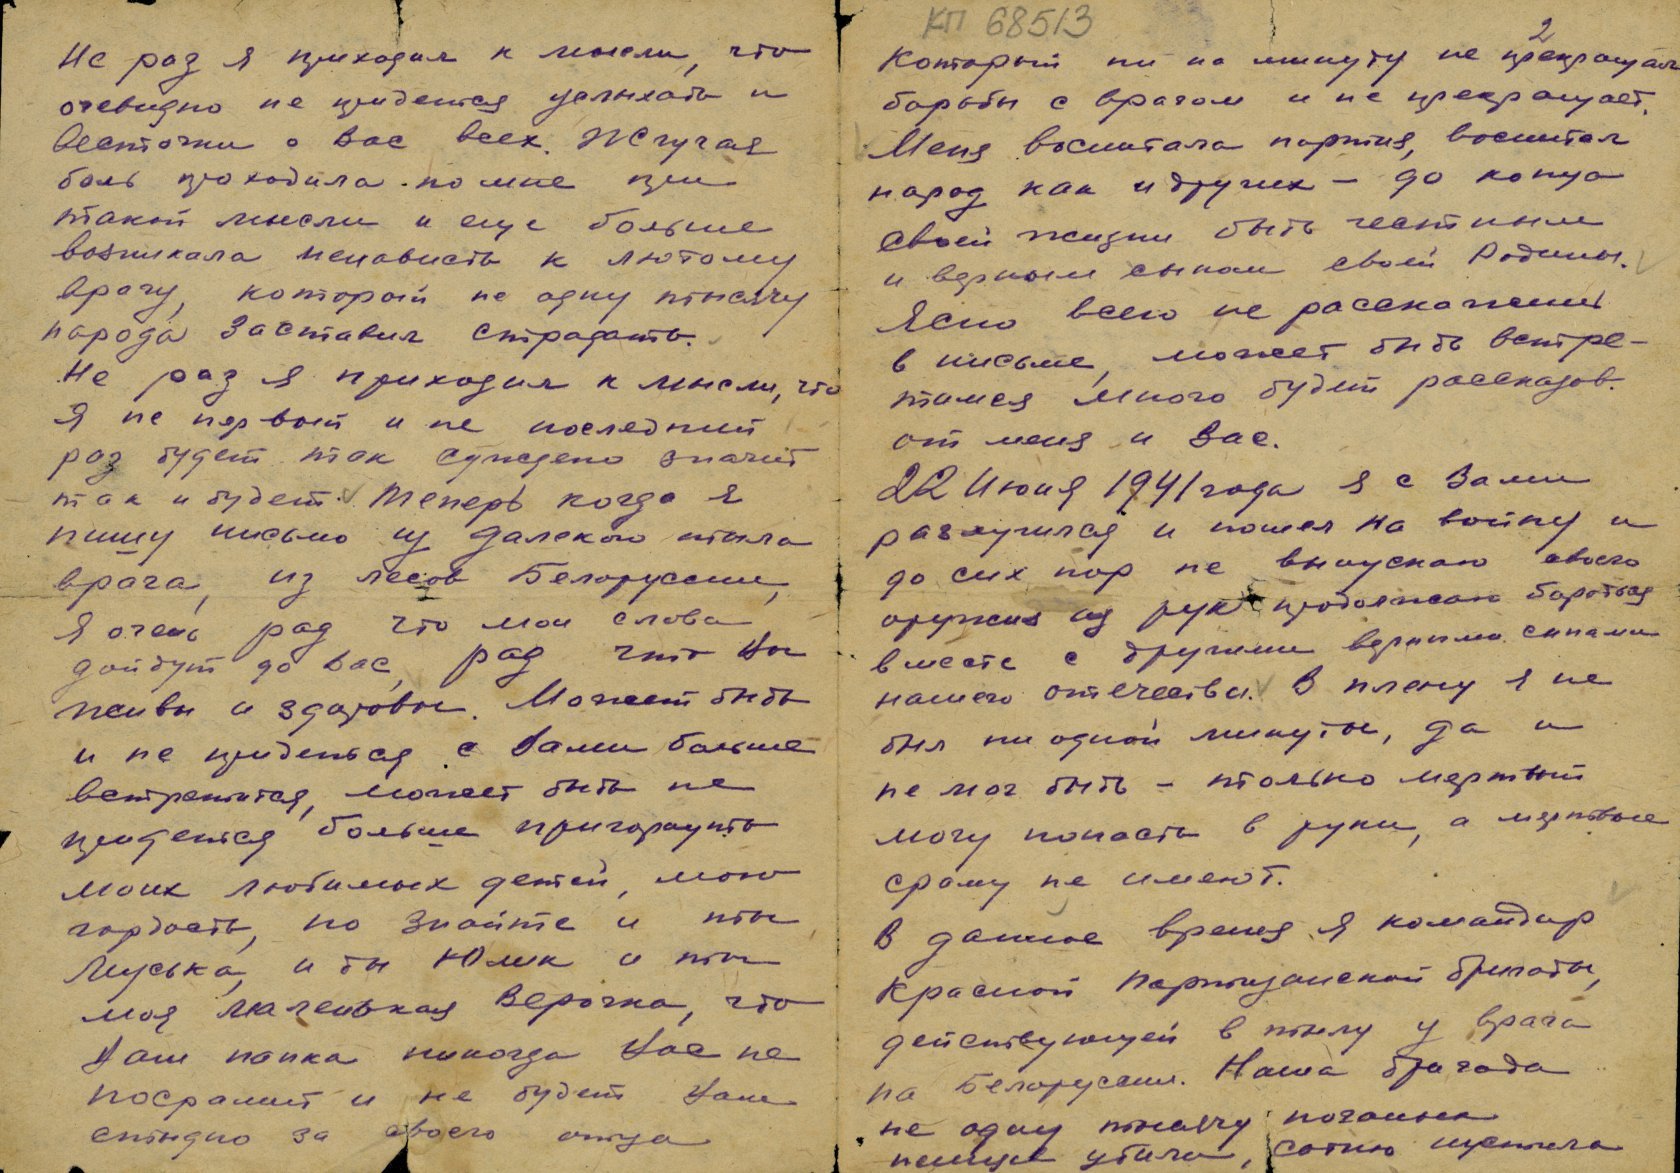 Не раз я приходил к мысли, что
очевидно не придется услыхать и
весточки о Вас всех. Жгучая
боль проходила по мне при
такой мысли и еще больше
возникала ненависть к лютому
врагу, который не одну тысячу
народа заставил страдать.
Не раз я приходил к мысли, что
я не первый и не последний
раз будет так суждено значит
так и будет. Теперь когда я
пишу письмо из далекого тыла
врага, из лесов Белоруссии,
я очень рад что мои слова
дойдут до Вас, рад что Вы
живы и здоровы. Может быть
и не придеться с Вами больше
встретится, может быть не
придется больше пригорнуть
моих любимых детей, мою
гордость, но знайте и ты
Муська, и ты Юлик и ты
моя маленькая Верочка, что
Ваш папка никогда Вас не
посрамит и не будет Вам
стыдно за своего отца
КП 68513
2
который ни на минуту не прекращал
борьбы с врагом и не прекращает.
Меня воспитала партия, воспитал
народ как и других – до конца
своей жизни быть честным
и верным сыном своей Родины.
Ясно всего не расскажешь
в письме, может быть встре-
тимся много будет рассказов
от меня и Вас.
22 Июня 1941 года я с Вами
разлучился и пошел на войну и
до сих пор не выпускаю своего
оружия из рук продолжаю бороться
вместе с другими верными сынами
нашего отечества. В плену я не
был ни одной минуты, да и
не мог быть – только мертвый
могу попасть в руки, а мертвые
сраму не имеют.
В данное время я командир
Красной Партизанской бригады,
действующей в тылу у врага
на Белоруссии. Наша бригада
не одну тысячу поганых
немцев убила, сотню пустила